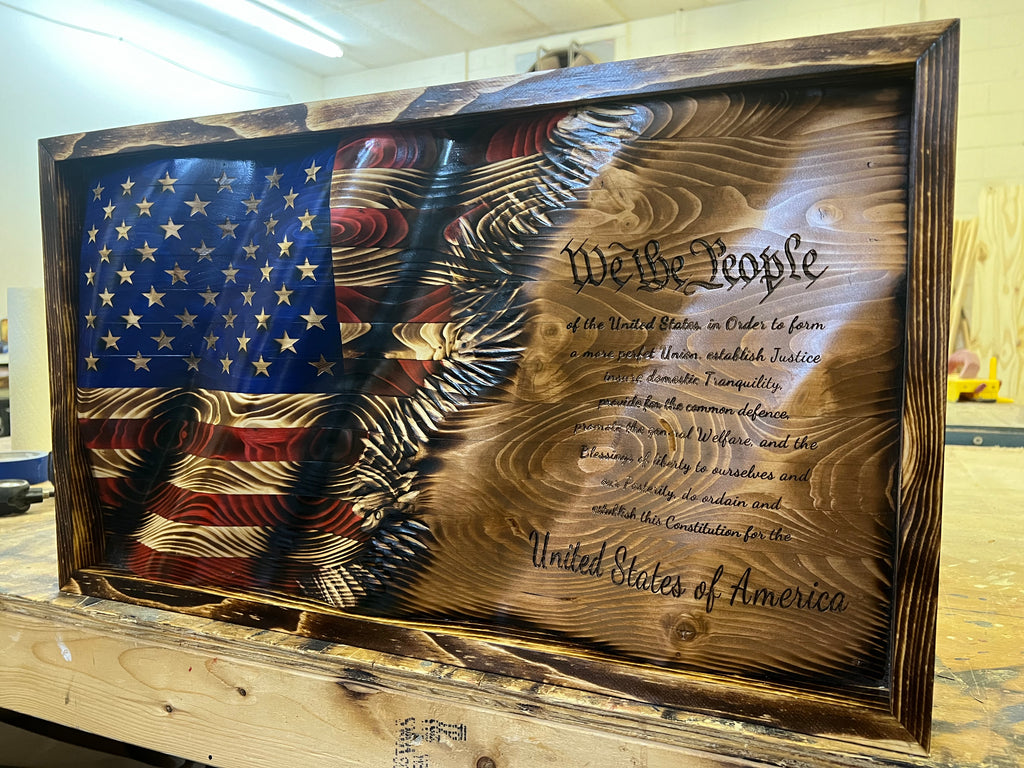 We the People
of the United States, in Order to form
a more perfect Union, establish Justice
insure domestic Tranquility,
provide for the common defence,
promote the general Welfare, and the
Blessings of liberty to ourselves and
our Posterity, do ordain and
establish this Constitution for the
United States of America